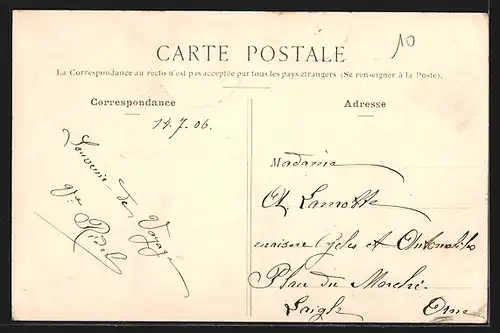 10
CARTE POSTALE
La Correspondance au recto n'est pas acceptée par tous les pays étrangers (Se renseigner à la Poste).
Correspondance
Adresse
14.7.06.
Souvenir de Voyage
Madame
Lamotte
maison Cycles et Automobiles
Place du Marché
Laigle Orne